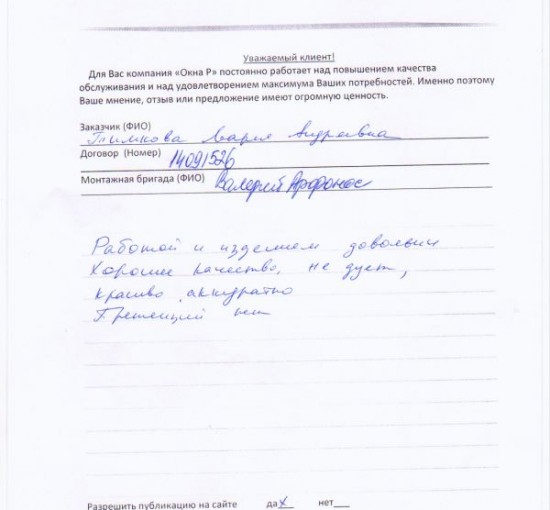 Уважаемый клиент!
Для Вас компания «Окна Р» постоянно работает над повышением качества
обслуживания и над удовлетворением максимума Ваших потребностей. Именно поэтому
Ваше мнение, отзыв или предложение имеют огромную ценность.
Заказчик (ФИО)
Тимкова Мария Андреевна
Договор (Номер) 14091526
Монтажная бригада (ФИО) Валерий Афонас
Работой и изделием довольны
Хорошее качество, не дует,
красиво, аккуратно
Претензий нет
Разрешить публикацию на сайте да X нет